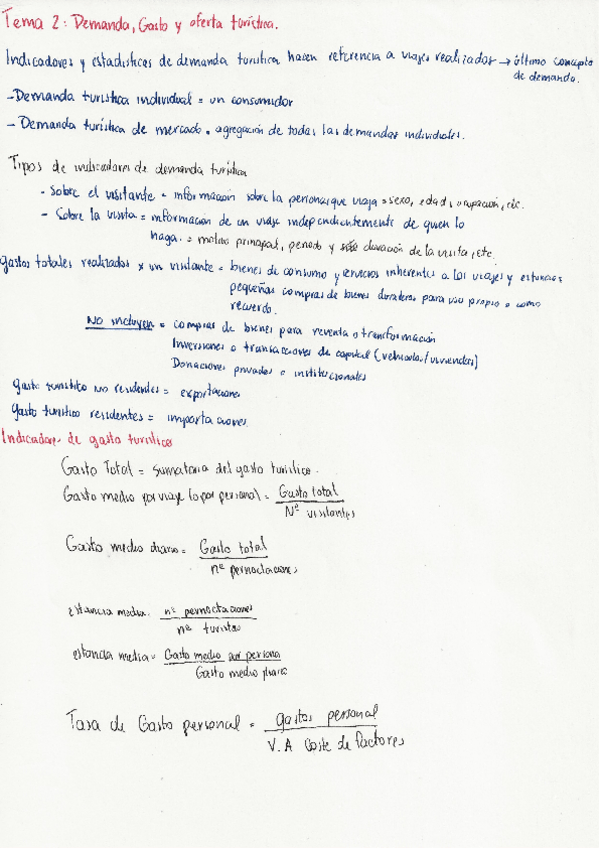 Tema 2: Demanda, Gasto y oferta turística.
Indicadores y estadísticas de demanda turística hacen referencia a viajes realizados → último concepto
de demanda.
- Demanda turística individual = un consumidor
- Demanda turística de mercado = agregación de todas las demandas individuales.
Tipos de indicadores de demanda turística
- Sobre el visitante = información sobre la persona que viaja = sexo, edad, ocupación, etc.
- Sobre la visita = información de un viaje independientemente de quien lo
haga. = motivo principal, periodo y duración de la visita, etc.
Gastos totales realizados x un visitante = bienes de consumo y servicios inherentes a los viajes y estancias
pequeñas compras de bienes duraderos para uso propio o como
recuerdo.
No incluyen = compras de bienes para reventa o transformación
Inversiones o transacciones de capital (vehículos/viviendas)
Donaciones privadas o institucionales
Gasto turístico no residentes = exportaciones
Gasto turístico residentes = importaciones.
Indicadores de gasto turístico
Gasto Total = sumatoria del gasto turístico.
Gasto medio por viaje (o por persona) = Gasto total
Nº visitantes
Gasto medio diario = Gasto total
nº pernoctaciones
estancia media = nº pernoctaciones
nº turistas
estancia media = Gasto medio por persona
Gasto medio diario
Tasa de Gasto personal = gastos personal
V.A Coste de factores